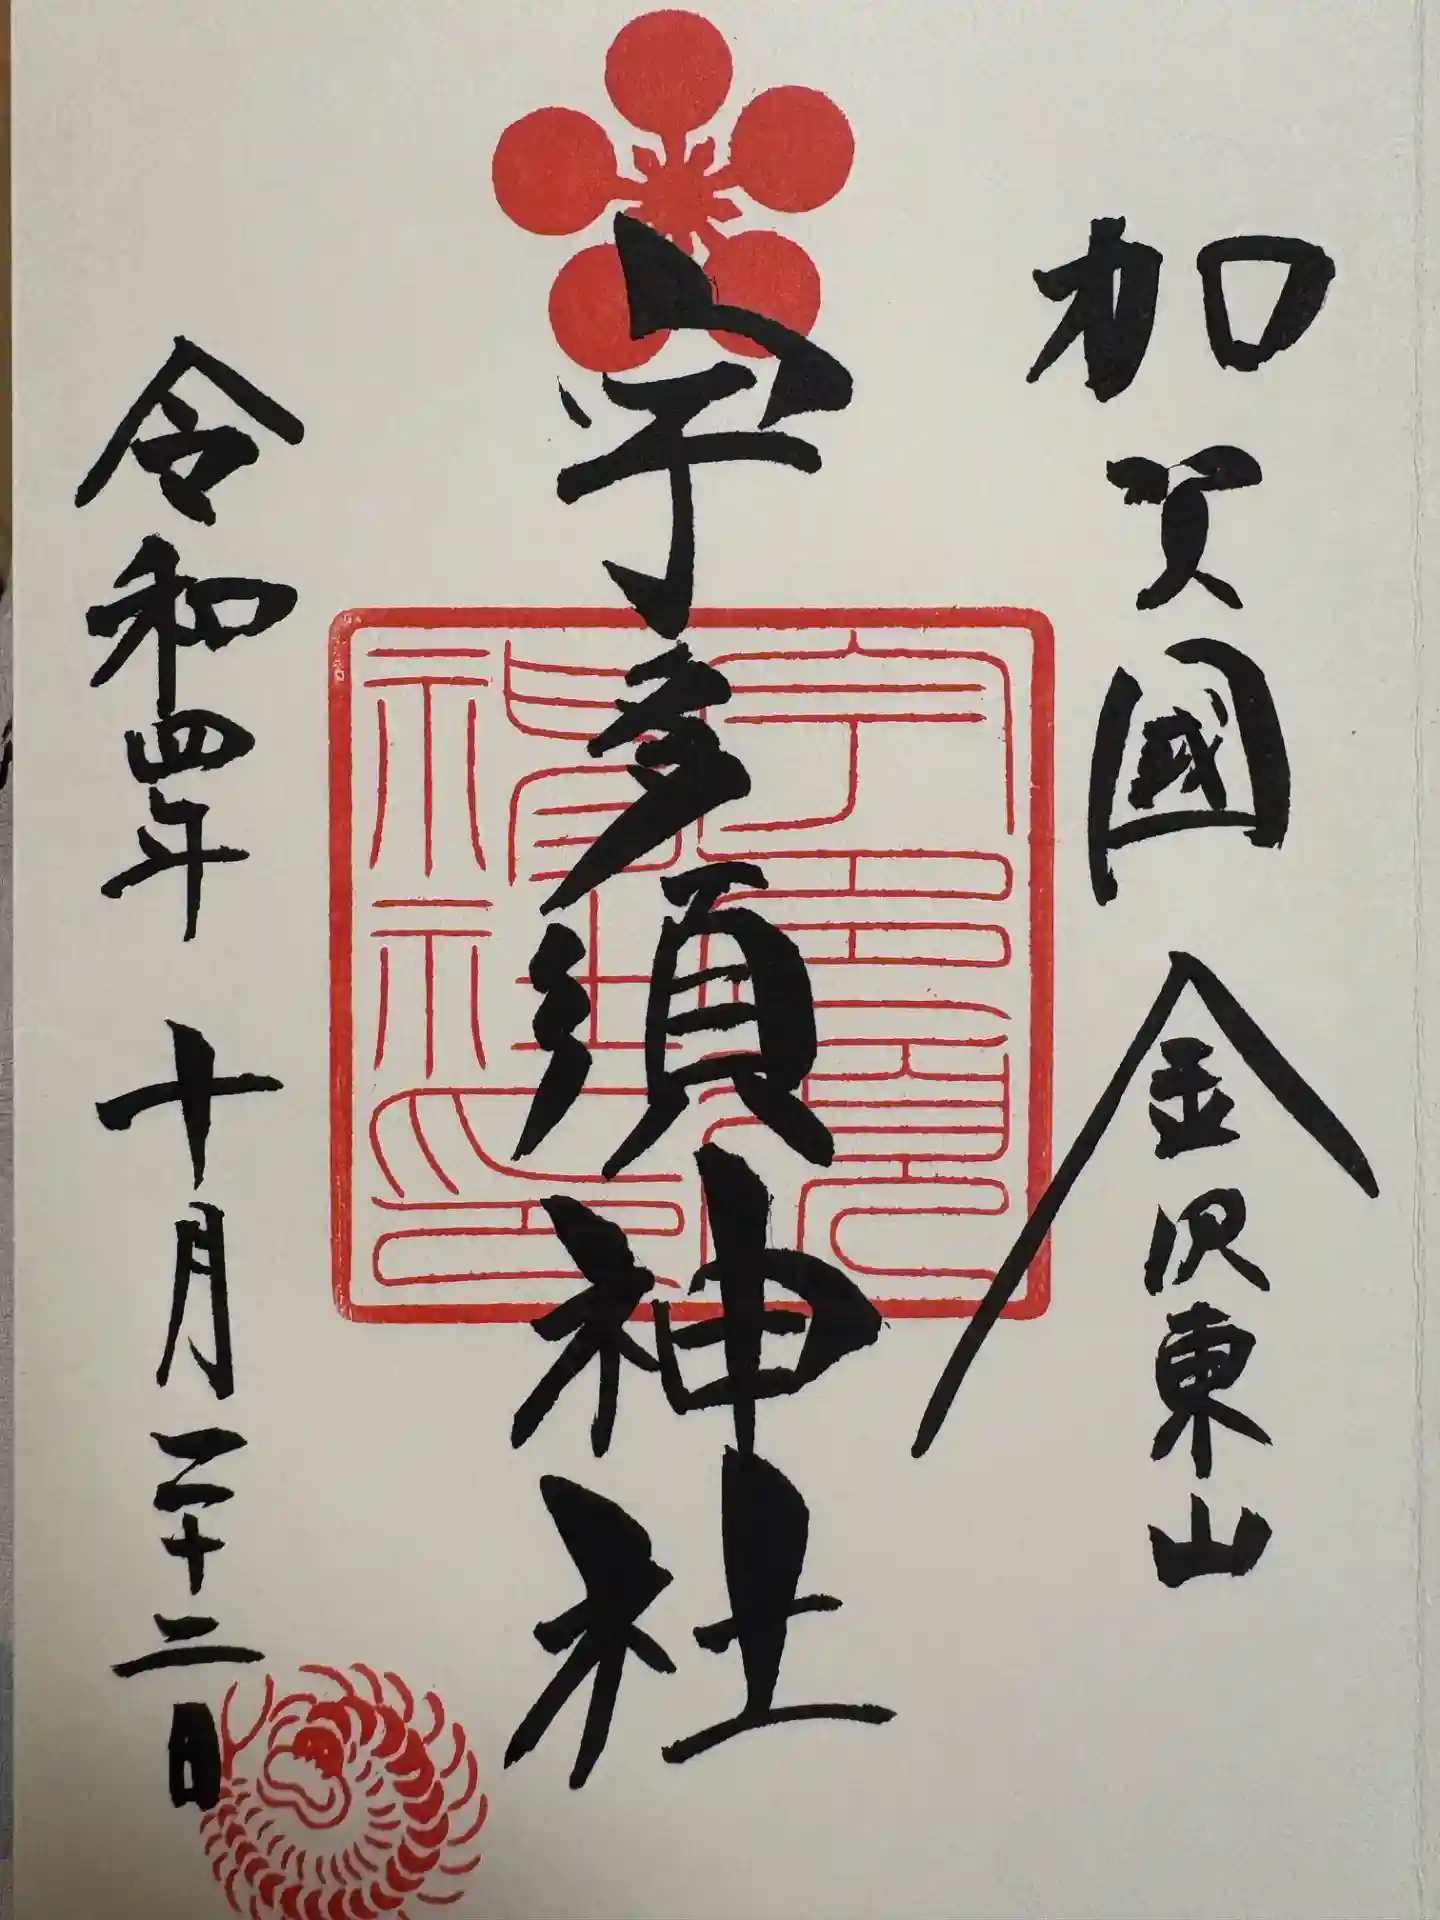 加賀國 金沢東山
宇多須神社
宇多須
神社印
令和四年 十月二十二日